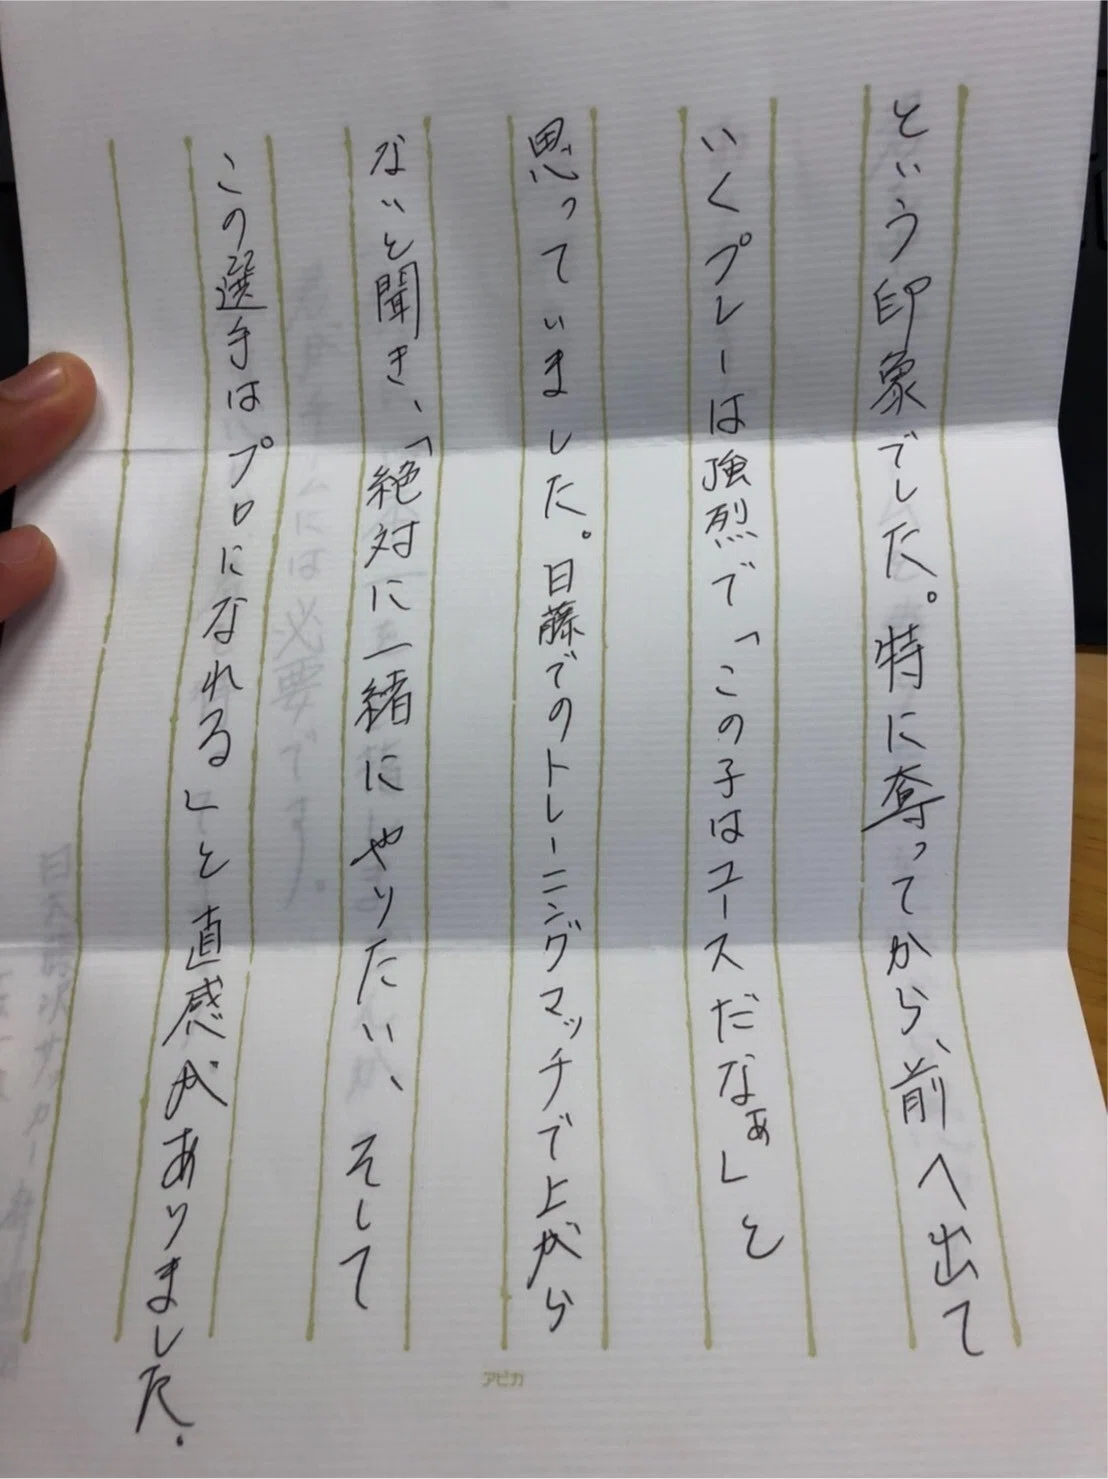 という印象でした。特に奪ってから、前へ出て
いくプレーは強烈で「この子はユースだなぁ」と
思っていました。日藤でのトレーニングマッチで上から
ないと聞き、「絶対に一緒にやりたい、そして
この選手はプロになれる」と直感がありました。
アピカ